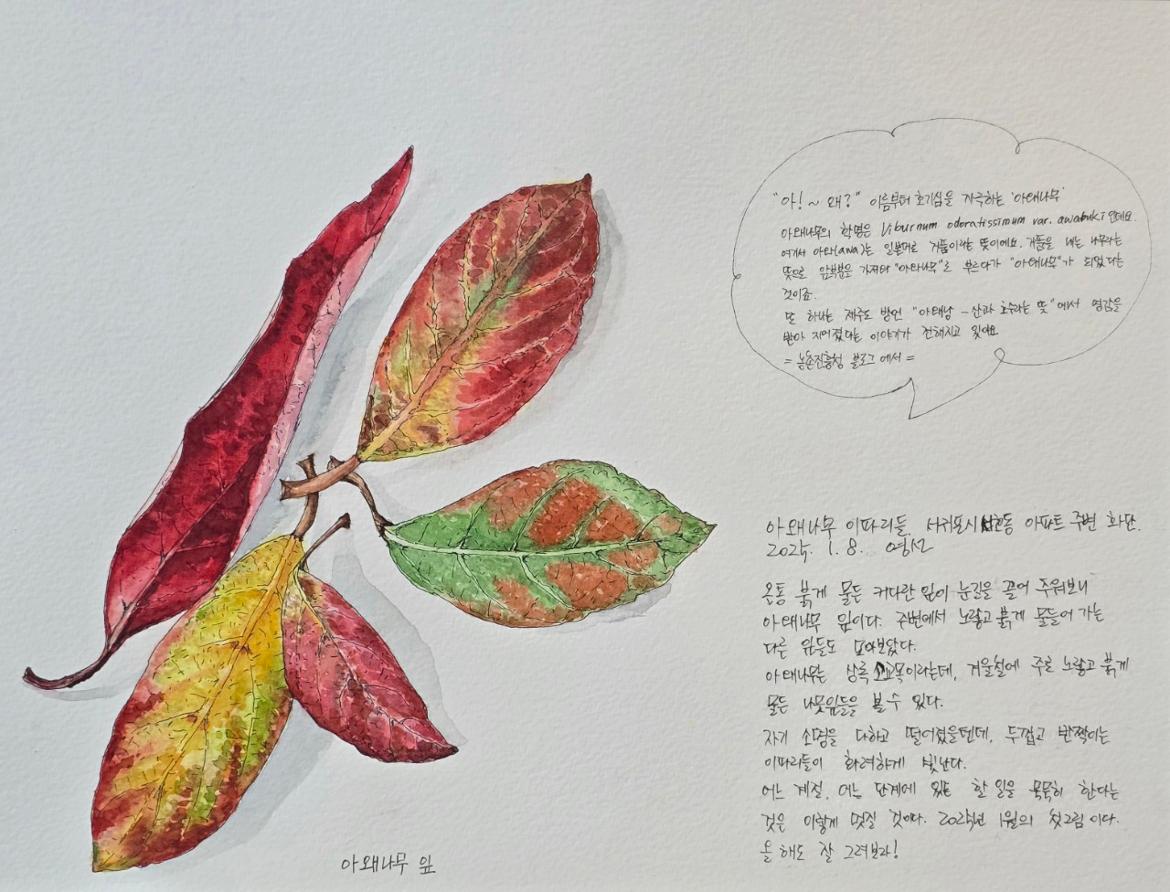 "아!~ 왜?" 이름부터 호기심을 자극하는 '아왜나무'
아왜나무의 학명은 Viburnum odoratissimum var. awabuki 인데요.
여기서 아와(awa)는 일본어로 거품이라는 뜻이에요. 거품을 내는 나무라는
뜻으로 앞부분을 가져와 "아와나무"로 부르다가 "아왜나무"가 되었다는
것이죠.
또 하나는 제주도 방언 "아왜낭 - 산과 호수라는 뜻"에서 영감을
받아 지어졌다는 이야기가 전해지고 있어요
= 농촌진흥청 블로그에서 =
아왜나무 이파리들, 서귀포시 서호동 아파트 주변 화단.
2025. 1. 8. 영선
온통 붉게 물든 커다란 잎이 눈길을 끌어 주워보니
아왜나무 잎이다. 주변에서 노랗고 붉게 물들어 가는
다른 잎들도 모아보았다.
아왜나무는 상록 소교목이라는데, 겨울철에 주로 노랗고 붉게
물든 나뭇잎들을 볼 수 있다.
자기 소명을 다하고 떨어졌을텐데, 두껍고 반짝이는
이파리들이 화려하게 빛난다.
어느 계절, 어느 단계에 있든 할 일을 묵묵히 한다는
것은 이렇게 멋질 것이다. 2025년 1월의 첫그림이다.
올 해도 잘 그려보라!
아왜나무 잎